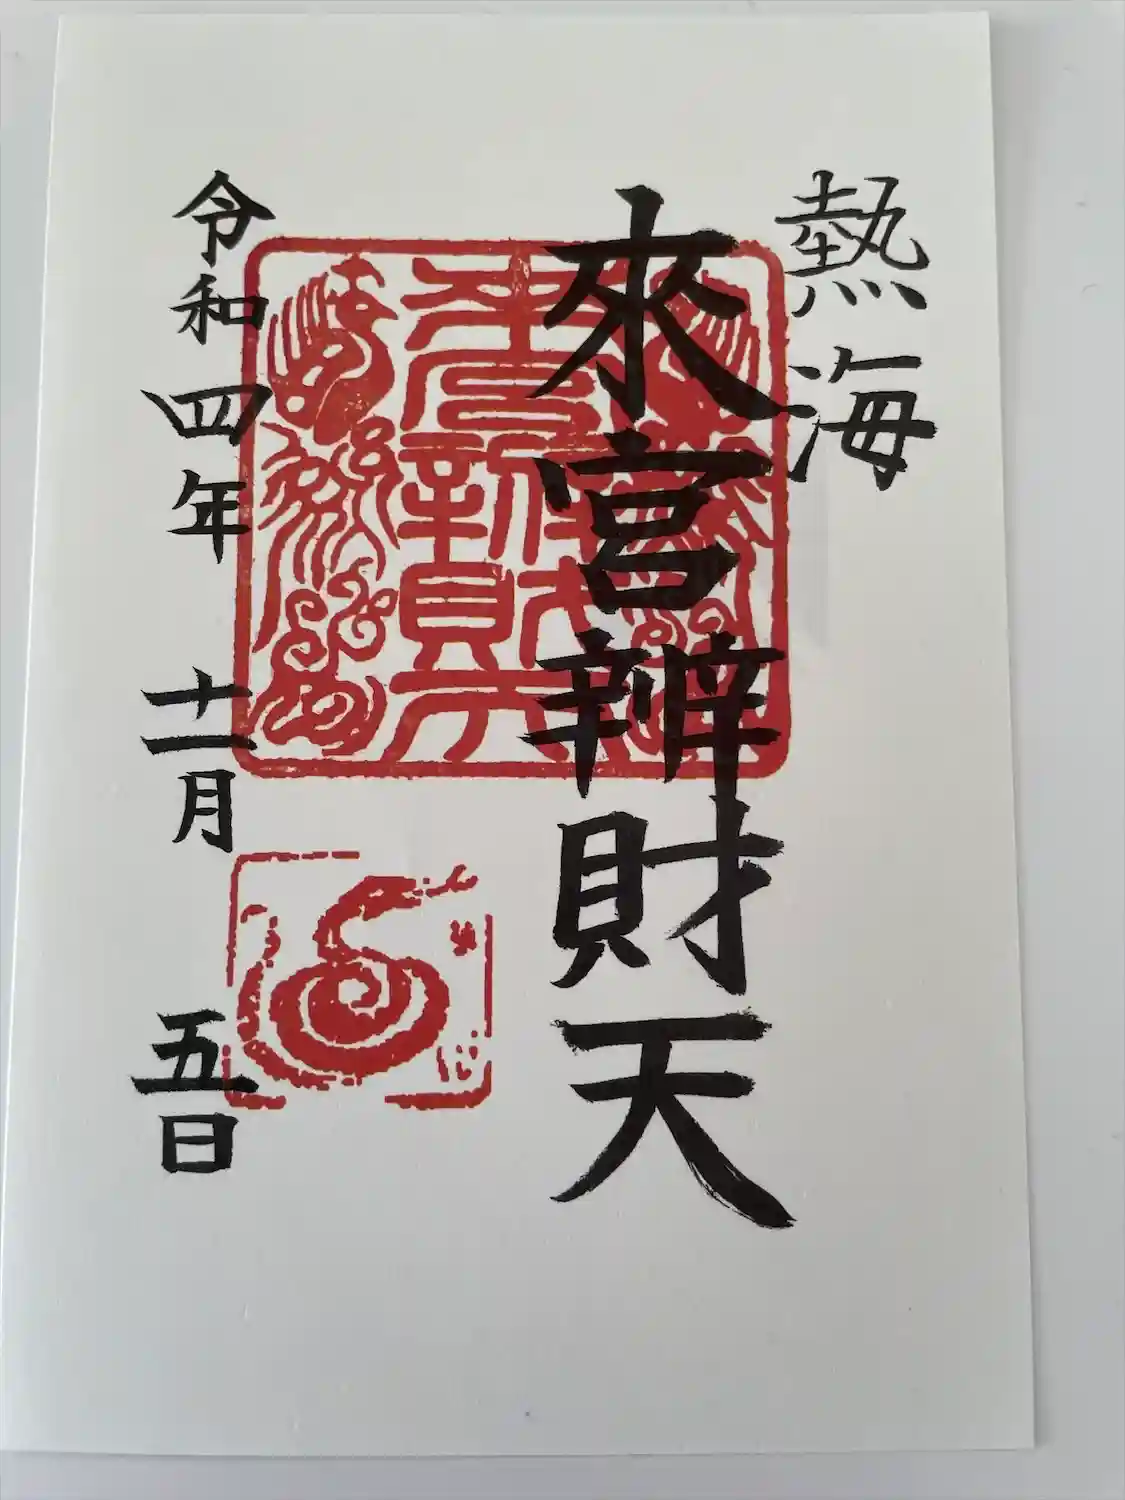 熱海
來宮辨財天
令和四年 十一月 五日